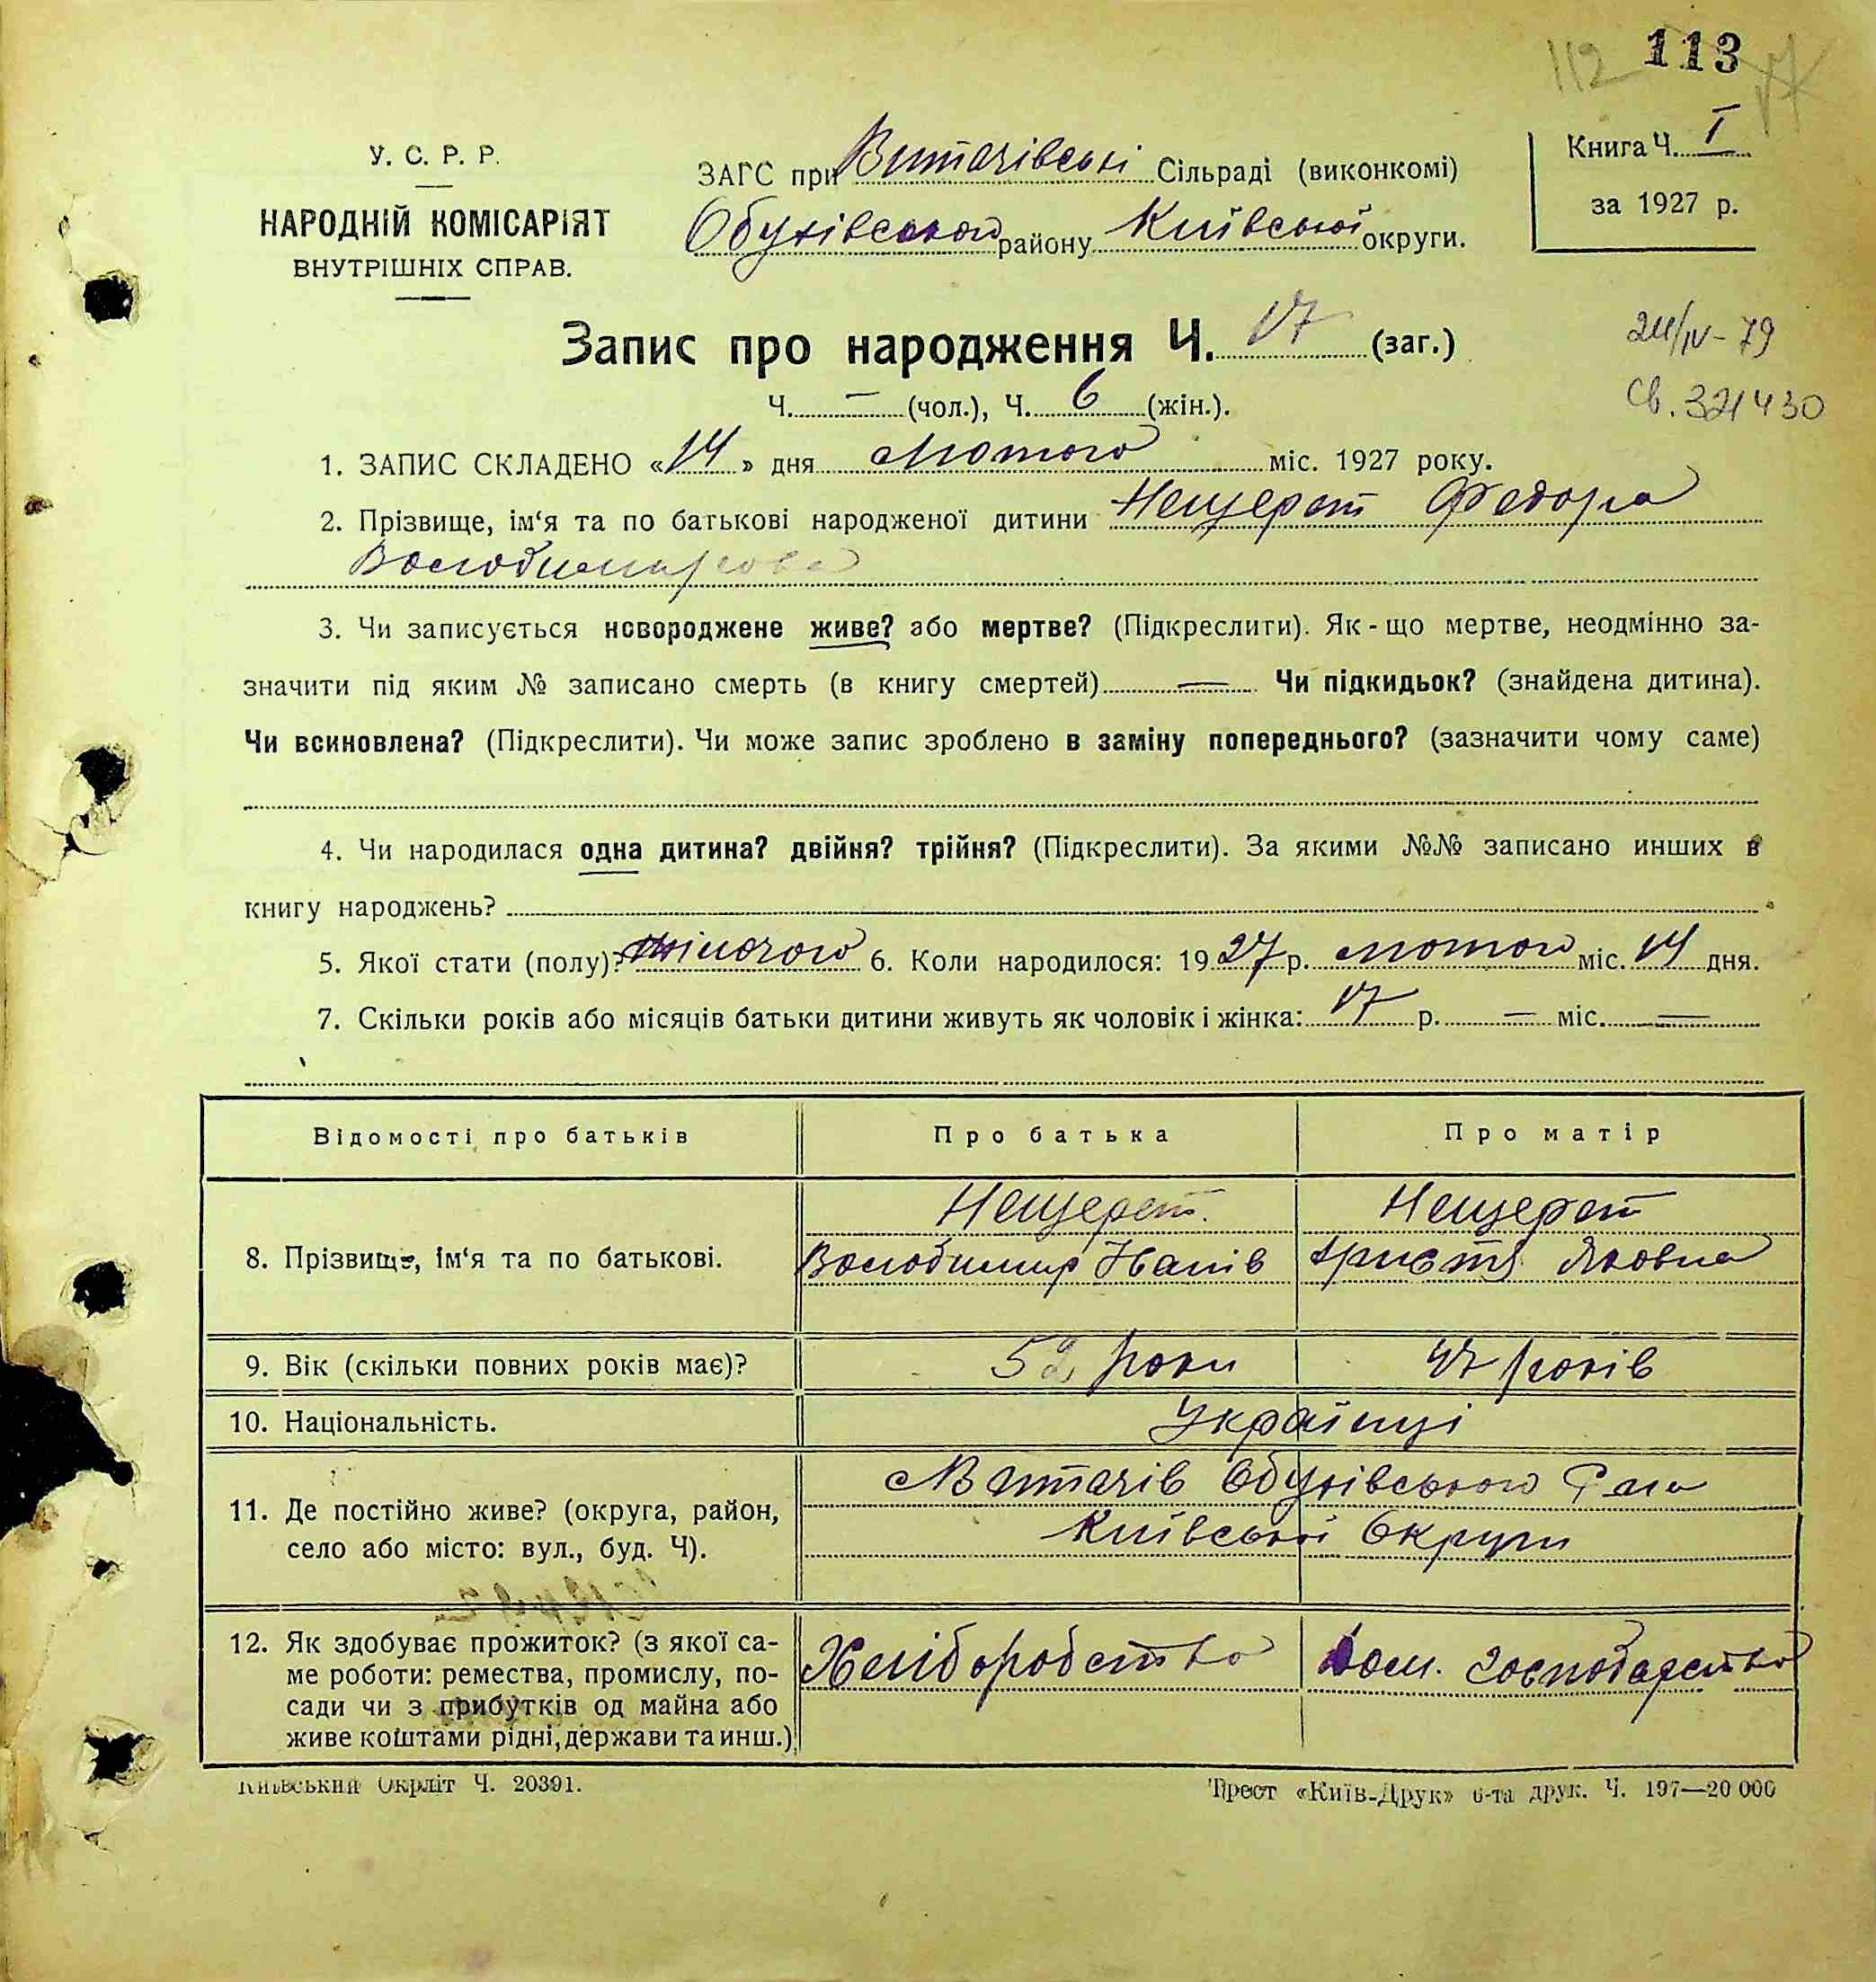 112 113
У. С. Р. Р.
НАРОДНІЙ КОМІСАРІЯТ
ВНУТРІШНІХ СПРАВ.
ЗАГС при Витачівські Сільраді (виконкомі)
Обухівського району Київської округи.
Книга Ч. I
за 1927 р.
Запис про народження Ч. 17 (заг.)
Ч. — (чол.), Ч. 6 (жін.).
24/IV-79
Св. 321430
1. ЗАПИС СКЛАДЕНО «14» дня Лютого міс. 1927 року.
2. Прізвище, ім'я та по батькові народженої дитини Нещерет Федора
Володимирова
3. Чи записується новороджене живе? або мертве? (Підкреслити). Як-що мертве, неодмінно за-
значити під яким № записано смерть (в книгу смертей) — Чи підкидьок? (знайдена дитина).
Чи всиновлена? (Підкреслити). Чи може запис зроблено в заміну попереднього? (зазначити чому саме)
4. Чи народилася одна дитина? двійня? трійня? (Підкреслити). За якими №№ записано инших в
книгу народжень?
5. Якої стати (полу)? жіночого 6. Коли народилося: 1927 р. лютого міс. 14 дня.
7. Скільки років або місяців батьки дитини живуть як чоловік і жінка: 17 р. — міс. —
Відомості про батьків Про батька Про матір
8. Прізвище, ім'я та по батькові.
Нещерет. Нещерет
Володимир Христя Яковна
9. Вік (скільки повних років має)? 52 роки 47 років
10. Національність. Українці
11. Де постійно живе? (округа, район,
село або місто: вул., буд. Ч).
Витачів Обухівського
Київської Округи
12. Як здобуває прожиток? (з якої са-
ме роботи: ремества, промислу, по-
сади чи з прибутків од майна або
живе коштами рідні, держави та инш.)
Хліборобство Дом. господарство
Київський Окрліт Ч. 20391.
Трест «Київ-Друк» 6-та друк. Ч. 197—20 000